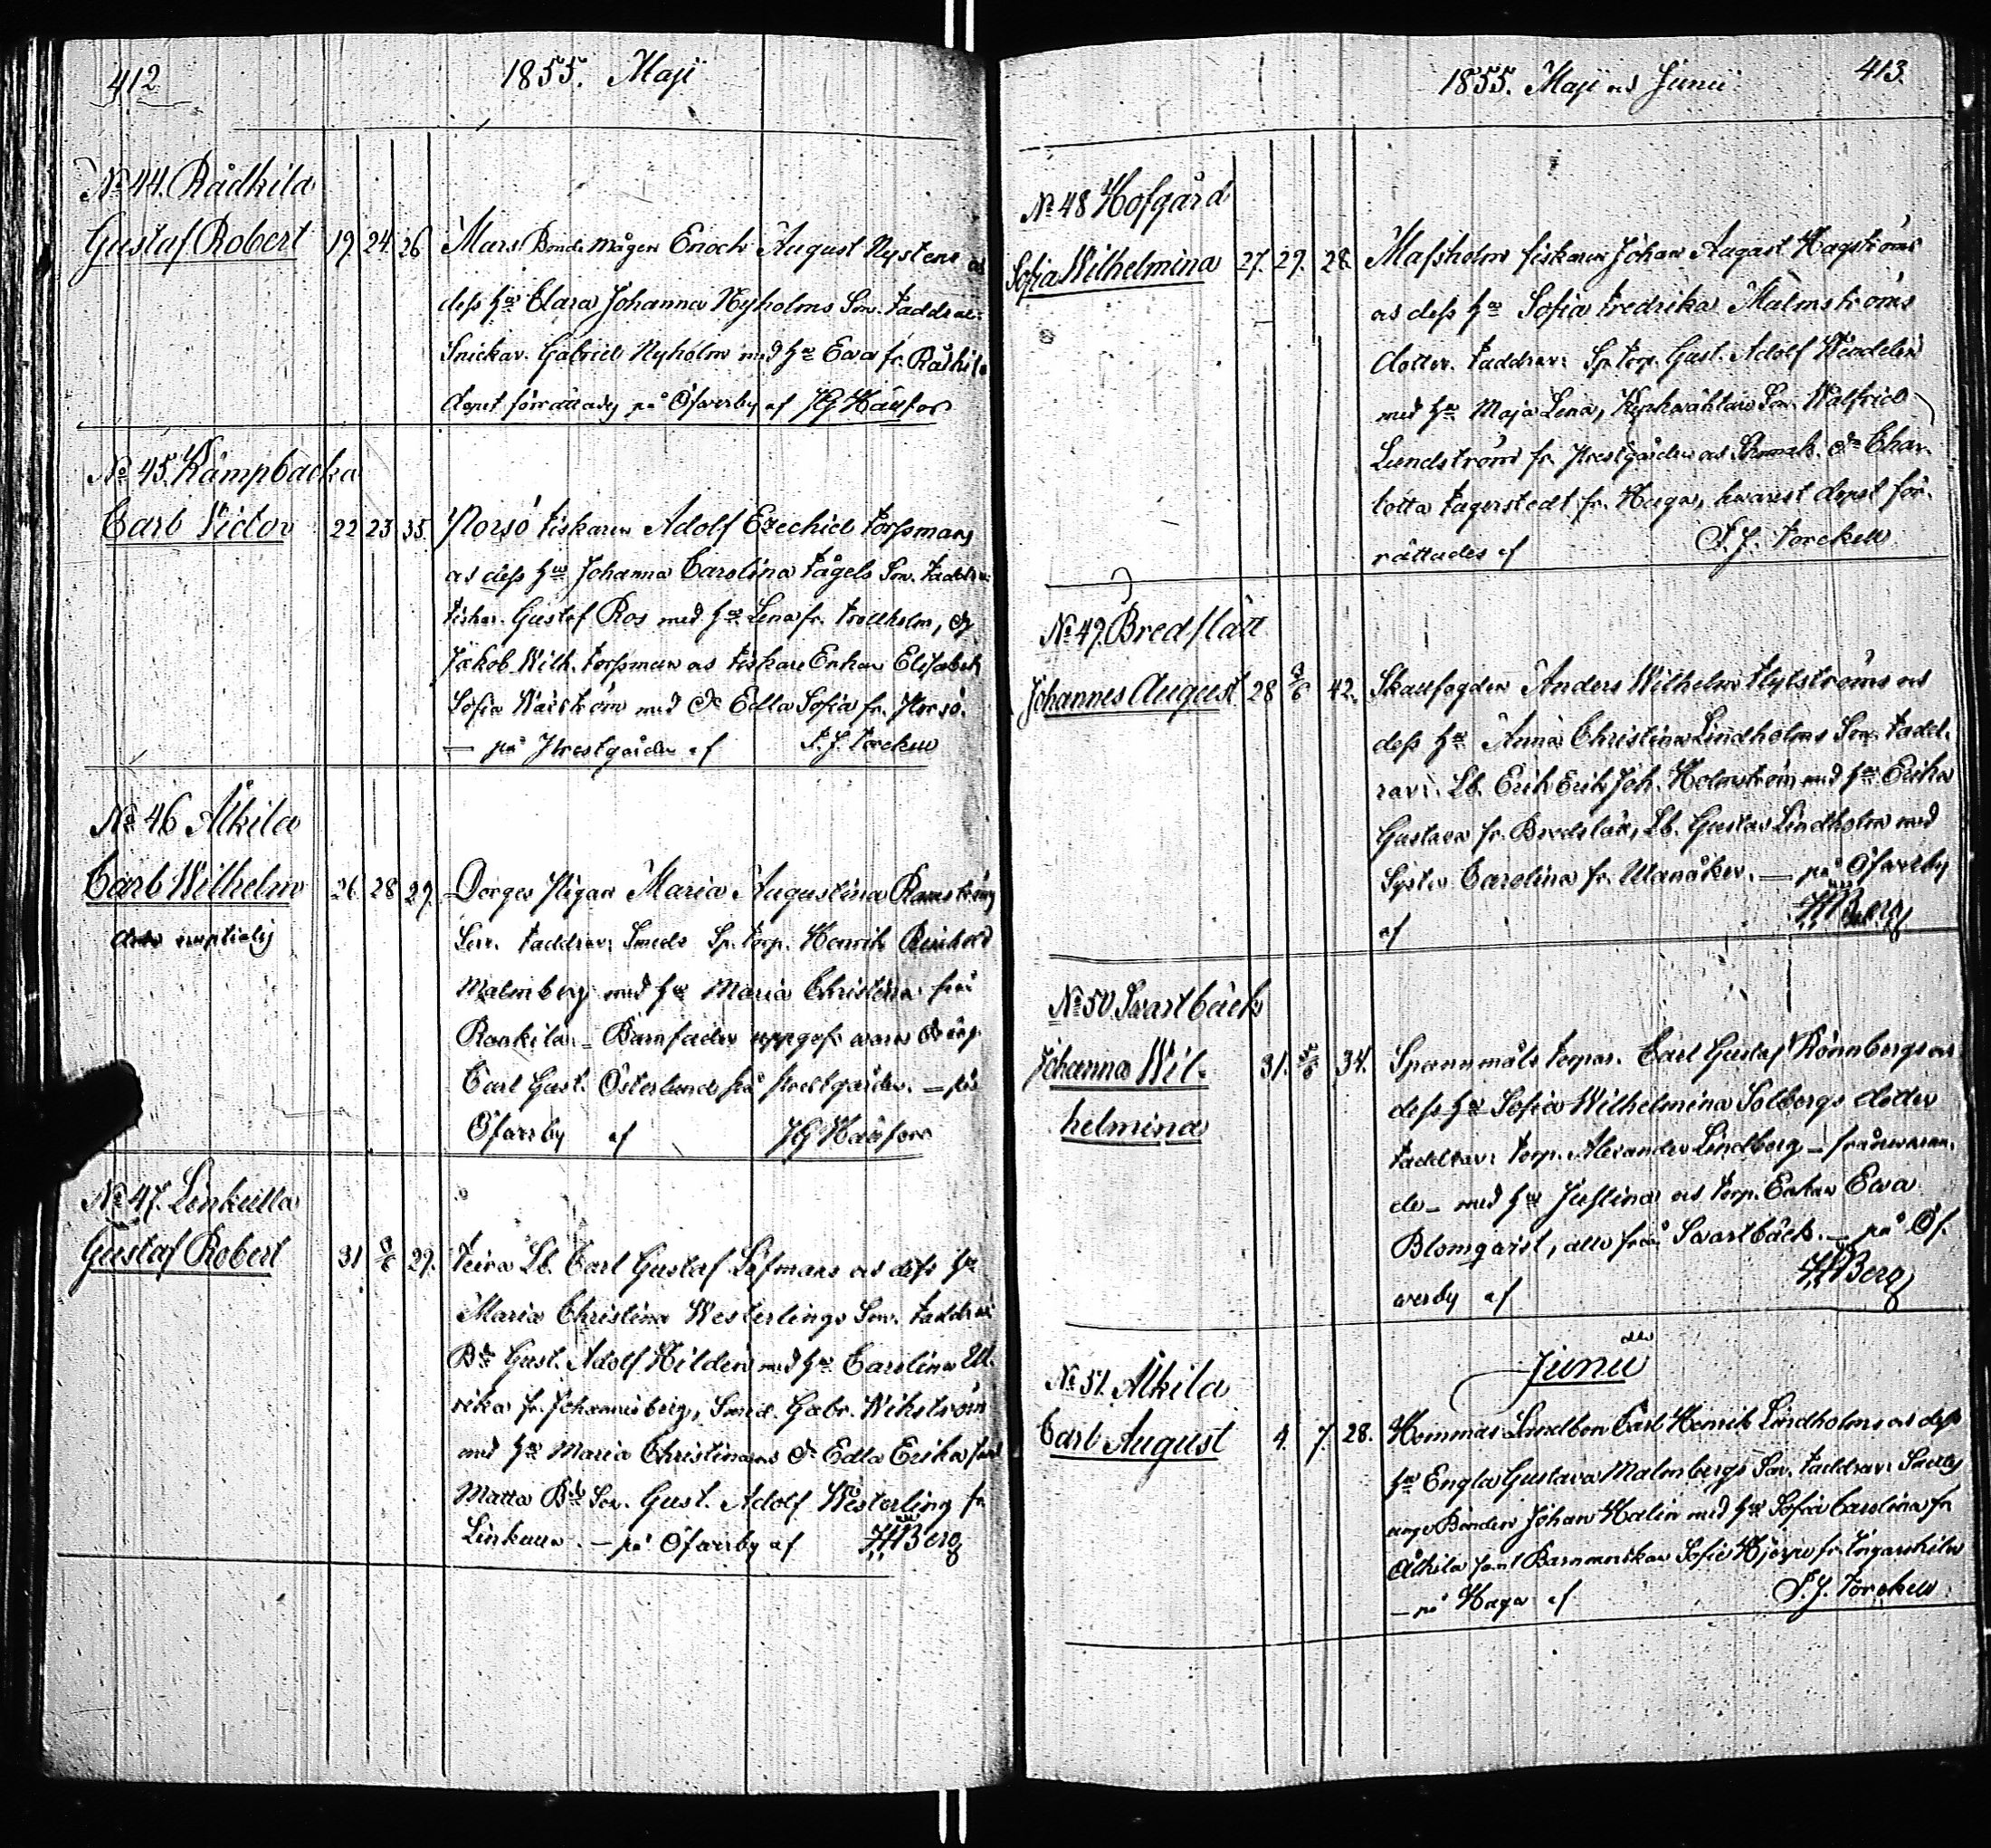 412
1855. Maji
No 44. Rådkila
Gustaf Robert 19. 24. 26 Mars Bonde mågen Enoch August Nystens as
dess hu Clara Johanna Nyholms Son. Faddrar:
Snickar. Gabriel Nyholm med hu Eva fr. Rådkila
dopet förrättades på Öfverby af JG Häufor
No 45. Kämpbacka
Carl Victor 22 23 35. Norsö Fiskaren Adolf Ezechiel Forssmans
as dess hu Johanna Carolina Fågels Son. Faddrar:
Fiskar. Gustaf Ros med hu Lena fr. Trollholm, Dr
Jakob Wilh. Forssman as Fiskare Enkan Elisabeth
Sofia Wäström med Dr Edla Sofia fr. Norsö.
— på Prestgården af F. J. Forckell
No 46 Ålkila
Carl Wilhelm 26. 28 29. Dorges Pigan Maria Augustina Ramströms
Son. Faddrar: Smeds Sp. Torp. Henrik Reinhold
Malmberg med hu Maria Christina från
Rankila. Barnfader uppgafs vara Dräng.
Carl Gust. Österlund från Prestgården. — på
Öfverby af JG Häufor
No 47. Linkulla
Gustaf Robert 31 3/6 29. Feira Lb. Carl Gustaf Löfmans as dess hu
Maria Christina Westerlings Son. Faddrar
Bd Gust. Adolf Hilden med hu Carolina Ul-
rika fr. Johannisberg, Smed. Gabr. Wikström
med hu Maria Christina as Dr Edla Erika från
Matta Bd Son. Gust. Adolf Westerling fr
Linkulla. — på Öfverby af HBerg
1855. Maji as Junii
413.
No 48 Hofgård
Sofia Wilhelmina 27. 29. 28. Massholm fiskaren Johan August Hagströms
as dess hu Sofia Fredrika Malmströms
dotter. Faddrar: Sp. Torp. Gust. Adolf Wendelin
med hu Maja Lena, Kyrkväktare Son. Walfrid
Lundström fr. Prestgården as Dr Char-
lotta Fagerstedt fr. Haga, hwarest dopet för-
rättades af F. J. Forckell
No 49. Bredslätt
Johannes August 28 3/6 42. Skallfogden Anders Wilhelm Flytströms as
dess hu Anna Christina Lindholms Son. Fadd-
rar: Lb. Erik Erik Joh. Holmström med hu Erika
Gustava fr. Bredslätt, Lb. Gustav Lindholm med
Syster Carolina fr. Ulanåker. — på Öfverby
af HBerg
No 50. Svartbäck
Johanna Wil- 31. 34. Spannmåls Torpar. Carl Gustaf Rönnbergs as
helmina dess hu Sofia Wilhelmina Solbergs dotter
Faddrar: Torp. Alexander Lindberg — frånvaran-
de — med hu Justina as Torp. Enkan Eva
Blomqvist, alla från Svartbäck. — på Öf-
verby af HBerg
Junii
No 51. Ålkila
Carl August 4. 7. 28. Hemmas Landbon Carl Henrik Lindholms as dess
hu Engla Gustava Malmbergs Son. Faddrar:
unge Bonden Johan Malin med hu Sofia Carolina fr
Ålkila samt Barnmorskan Sofie Hjerpe fr. Ingarskila
— på Haga af F. J. Forckell